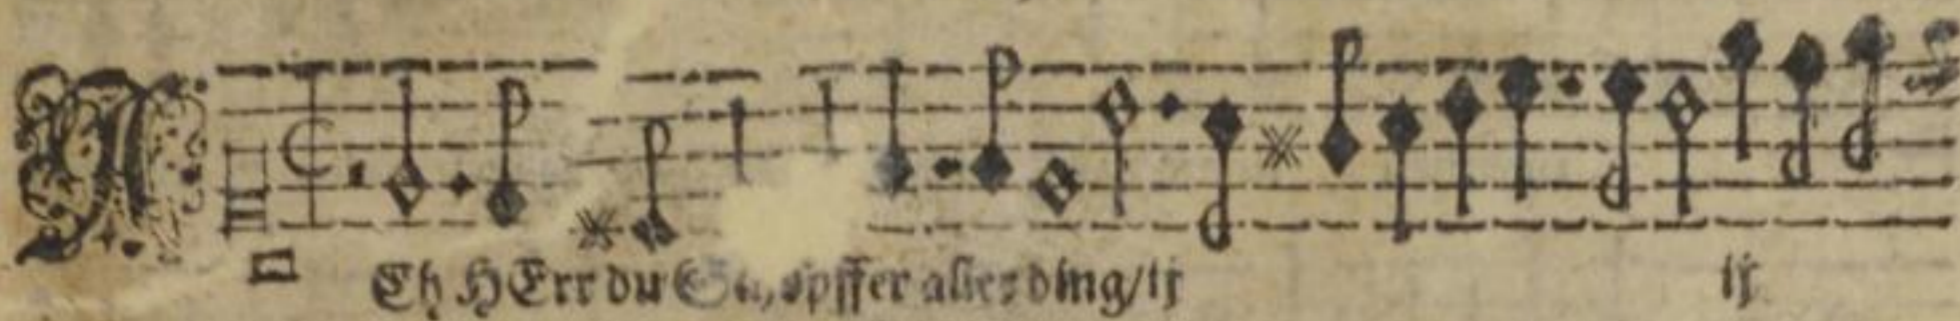 ACh HErr du Schöpffer aller ding/ij ij